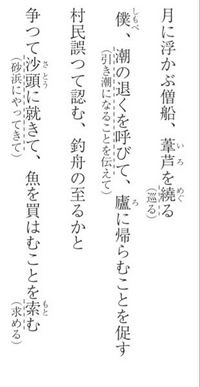 月に浮かぶ僧船、葦芦を繞る
いろ
めぐ
（巡る）
僕、潮の退くを呼びて、廬に帰らむことを促す
しもべ
ろ
（引き潮になることを伝えて）
村民誤つて認む、釣舟の至るかと
争つて沙頭に就きて、魚を買はむことを索む
さとう
もと
（砂浜にやってきて）
（求める）